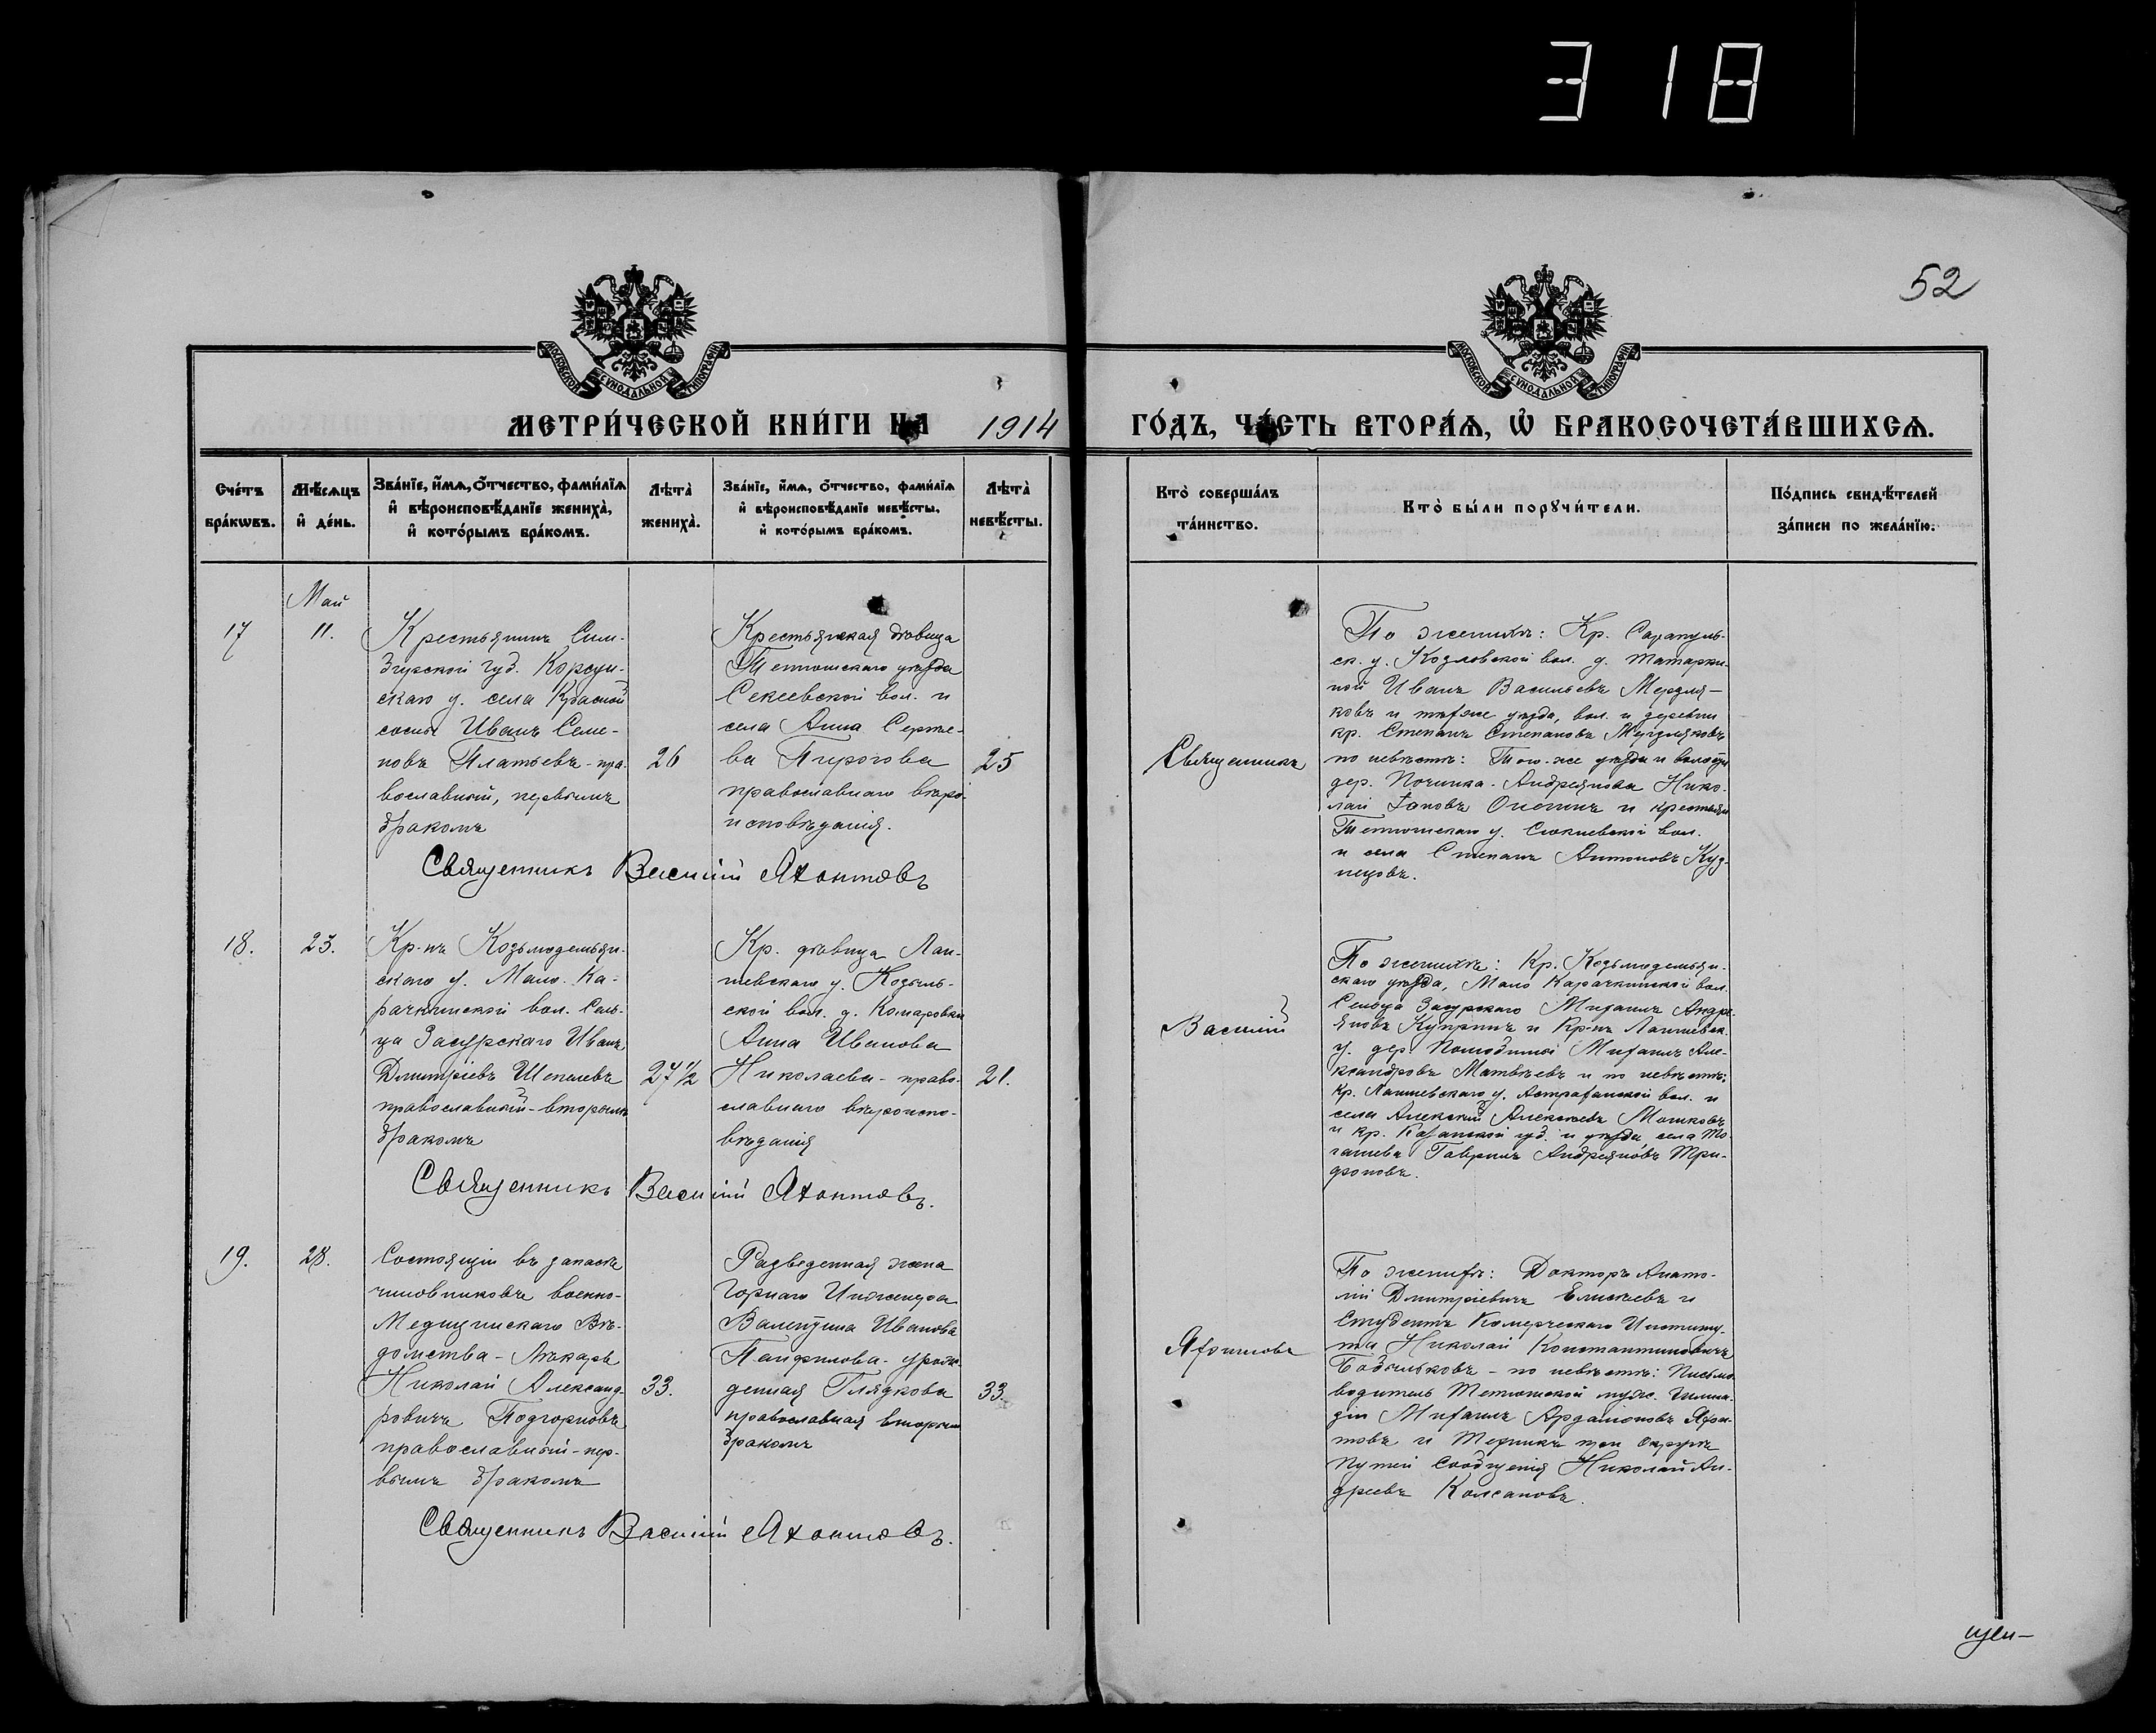 318
52
МОСКОВСКОЙ СѴНОДАЛЬНОЙ ТИПОГРАФІИ
МОСКОВСКОЙ СѴНОДАЛЬНОЙ ТИПОГРАФІИ
МЕТРИ́ЧЕСКОЙ КНИ́ГИ НА 1914 ГО́ДЪ, ЧА́СТЬ ВТОРА́Ѧ, Ѡ҆ БРАКОСОЧЕТА́ВШИХСѦ.
Сче́тъ бра́кѡвъ.
Мѣ́сѧцъ и҆ де́нь.
Зва́нїе, и҆́мѧ, ѻ҆́тчество, фами́лїѧ и҆ вѣроисповѣ́данїе жениха̀, и҆ кото́рымъ бра́комъ.
Лѣта̀ жениха̀.
Зва́нїе, и҆́мѧ, ѻ҆́тчество, фами́лїѧ и҆ вѣроисповѣ́данїе невѣ́сты, и҆ кото́рымъ бра́комъ.
Лѣта̀ невѣ́сты.
Кто̀ соверша́лъ та́инство.
Кто̀ бы́ли порꙋчи́тели.
По́дпись свидѣ́телей за́писи по жела́нїю.
Май
17
11.
Крестьянинъ Сим-
бирской губ. Корсун-
скаго у. села Красной
сосны Иванъ Семе-
новъ Платьевъ - пра-
вославный, первымъ
бракомъ
26
Крестьянская дѣвица
Тетюшскаго уѣзда
Секеевской вол. и
села Анна Сергѣе-
ва Пирогова
православнаго вѣро-
исповѣданія.
25
Священникъ
По женихѣ: Кр. Сарапуль-
ск. у. Козловской вол. д. Татарки-
ной Иванъ Васильевъ Мерзля-
ковъ и тѣхже уѣзда, вол. и деревни
кр. Степанъ Степановъ Мерзляковъ
по невѣстѣ: Того-же уѣзда и волости
дер. Починка-Андреянова Нико-
лай Іаковъ Онегинъ и крестьян
Тетюшскаго у. Сюкеевской вол.
и села Степанъ Антоновъ Куз-
нецовъ.
Священникъ Василій Яхонтовъ
18.
23.
Кр-нъ Козьмодемьян-
скаго у. Мало-Ка-
рачкинской вол. Сель-
ца Засурскаго Иванъ
Дмитріевъ Шепелевъ
православный - вторымъ
бракомъ
27½
Кр. дѣвица Лаи-
шевскаго у. Козыль-
ской вол. д. Комаровки
Анна Иванова
Николаева - право-
славнаго вѣроиспо-
вѣданія
21.
Василій
По женихѣ: Кр. Козьмодемьян-
скаго уѣзда, Мало Карачкинской вол.
Сельца Засурскаго Михаилъ Андре-
яновъ Купринъ и Кр-нъ Лаишевск.
у. дер. Михаилъ Але-
ксандровъ Матвѣевъ и по невѣстѣ:
Кр. Лаишевскаго у. Астраханской вол. и
села Алексѣй Алексѣевъ Мошковъ
и кр. Казанской губ. и уѣзда села То-
гашева Гаврилъ Андреяновъ Три-
фоновъ.
Священникъ Василій Яхонтовъ.
19.
28.
Состоящій въ запасѣ
чиновниковъ военно-
Медицинскаго Вѣ-
домства - Лѣкарь
Николай Александ-
ровичъ Подгорновъ
православный - пер-
вымъ бракомъ
33.
Разведенная жена
Горнаго Инженера
Валентина Иванова
Панфилова - урож-
денная Глядкова
православная вторымъ
бракомъ
33.
Яхонтовъ
По женихѣ: Докторъ Анато-
лій Дмитріевичъ Елисѣевъ и
Студентъ Комерческаго Институ-
та Николай Константиновичъ
Бобыльковъ - по невѣстѣ: Письмо-
водитель Тетюшской муж. Гимна-
зіи Михаилъ Ардаліоновъ Яхон-
товъ и Техникъ при Округѣ
Путей Сообщенія Николай Ан-
дреевъ Колсановъ.
Священникъ Василій Яхонтовъ.